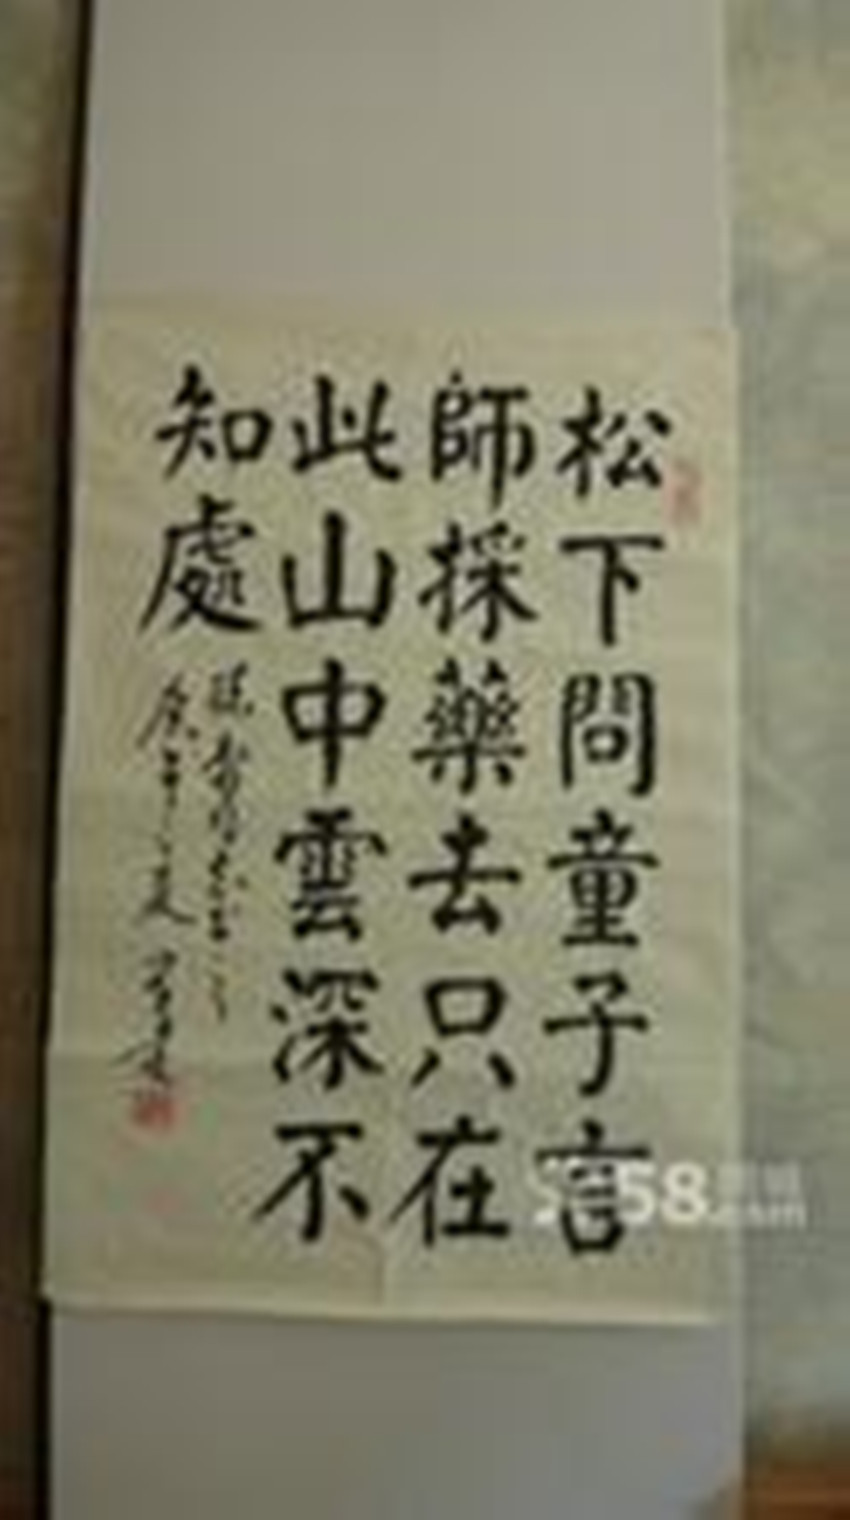 松下問童子言
師採藥去只在
此山中雲深不
知處
58.com